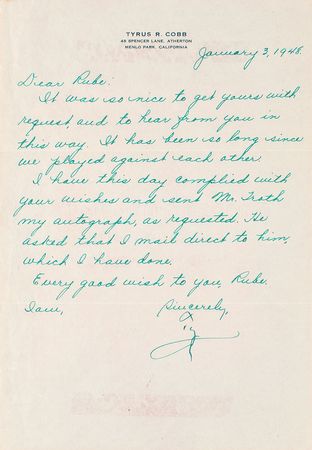 TYRUS R. COBB
48 SPENCER LANE, ATHERTON
MENLO PARK, CALIFORNIA
January 3, 1948.
Dear Rube:
It was so nice to get yours with
request, and to hear from you in
this way. It has been so long since
we played against each other.
I have this day complied with
your wishes and sent Mr. Troth
my autograph, as requested. He
asked that I mail direct to him,
which I have done.
Every good wish to you, Rube.
I am,
Sincerely,
Ty